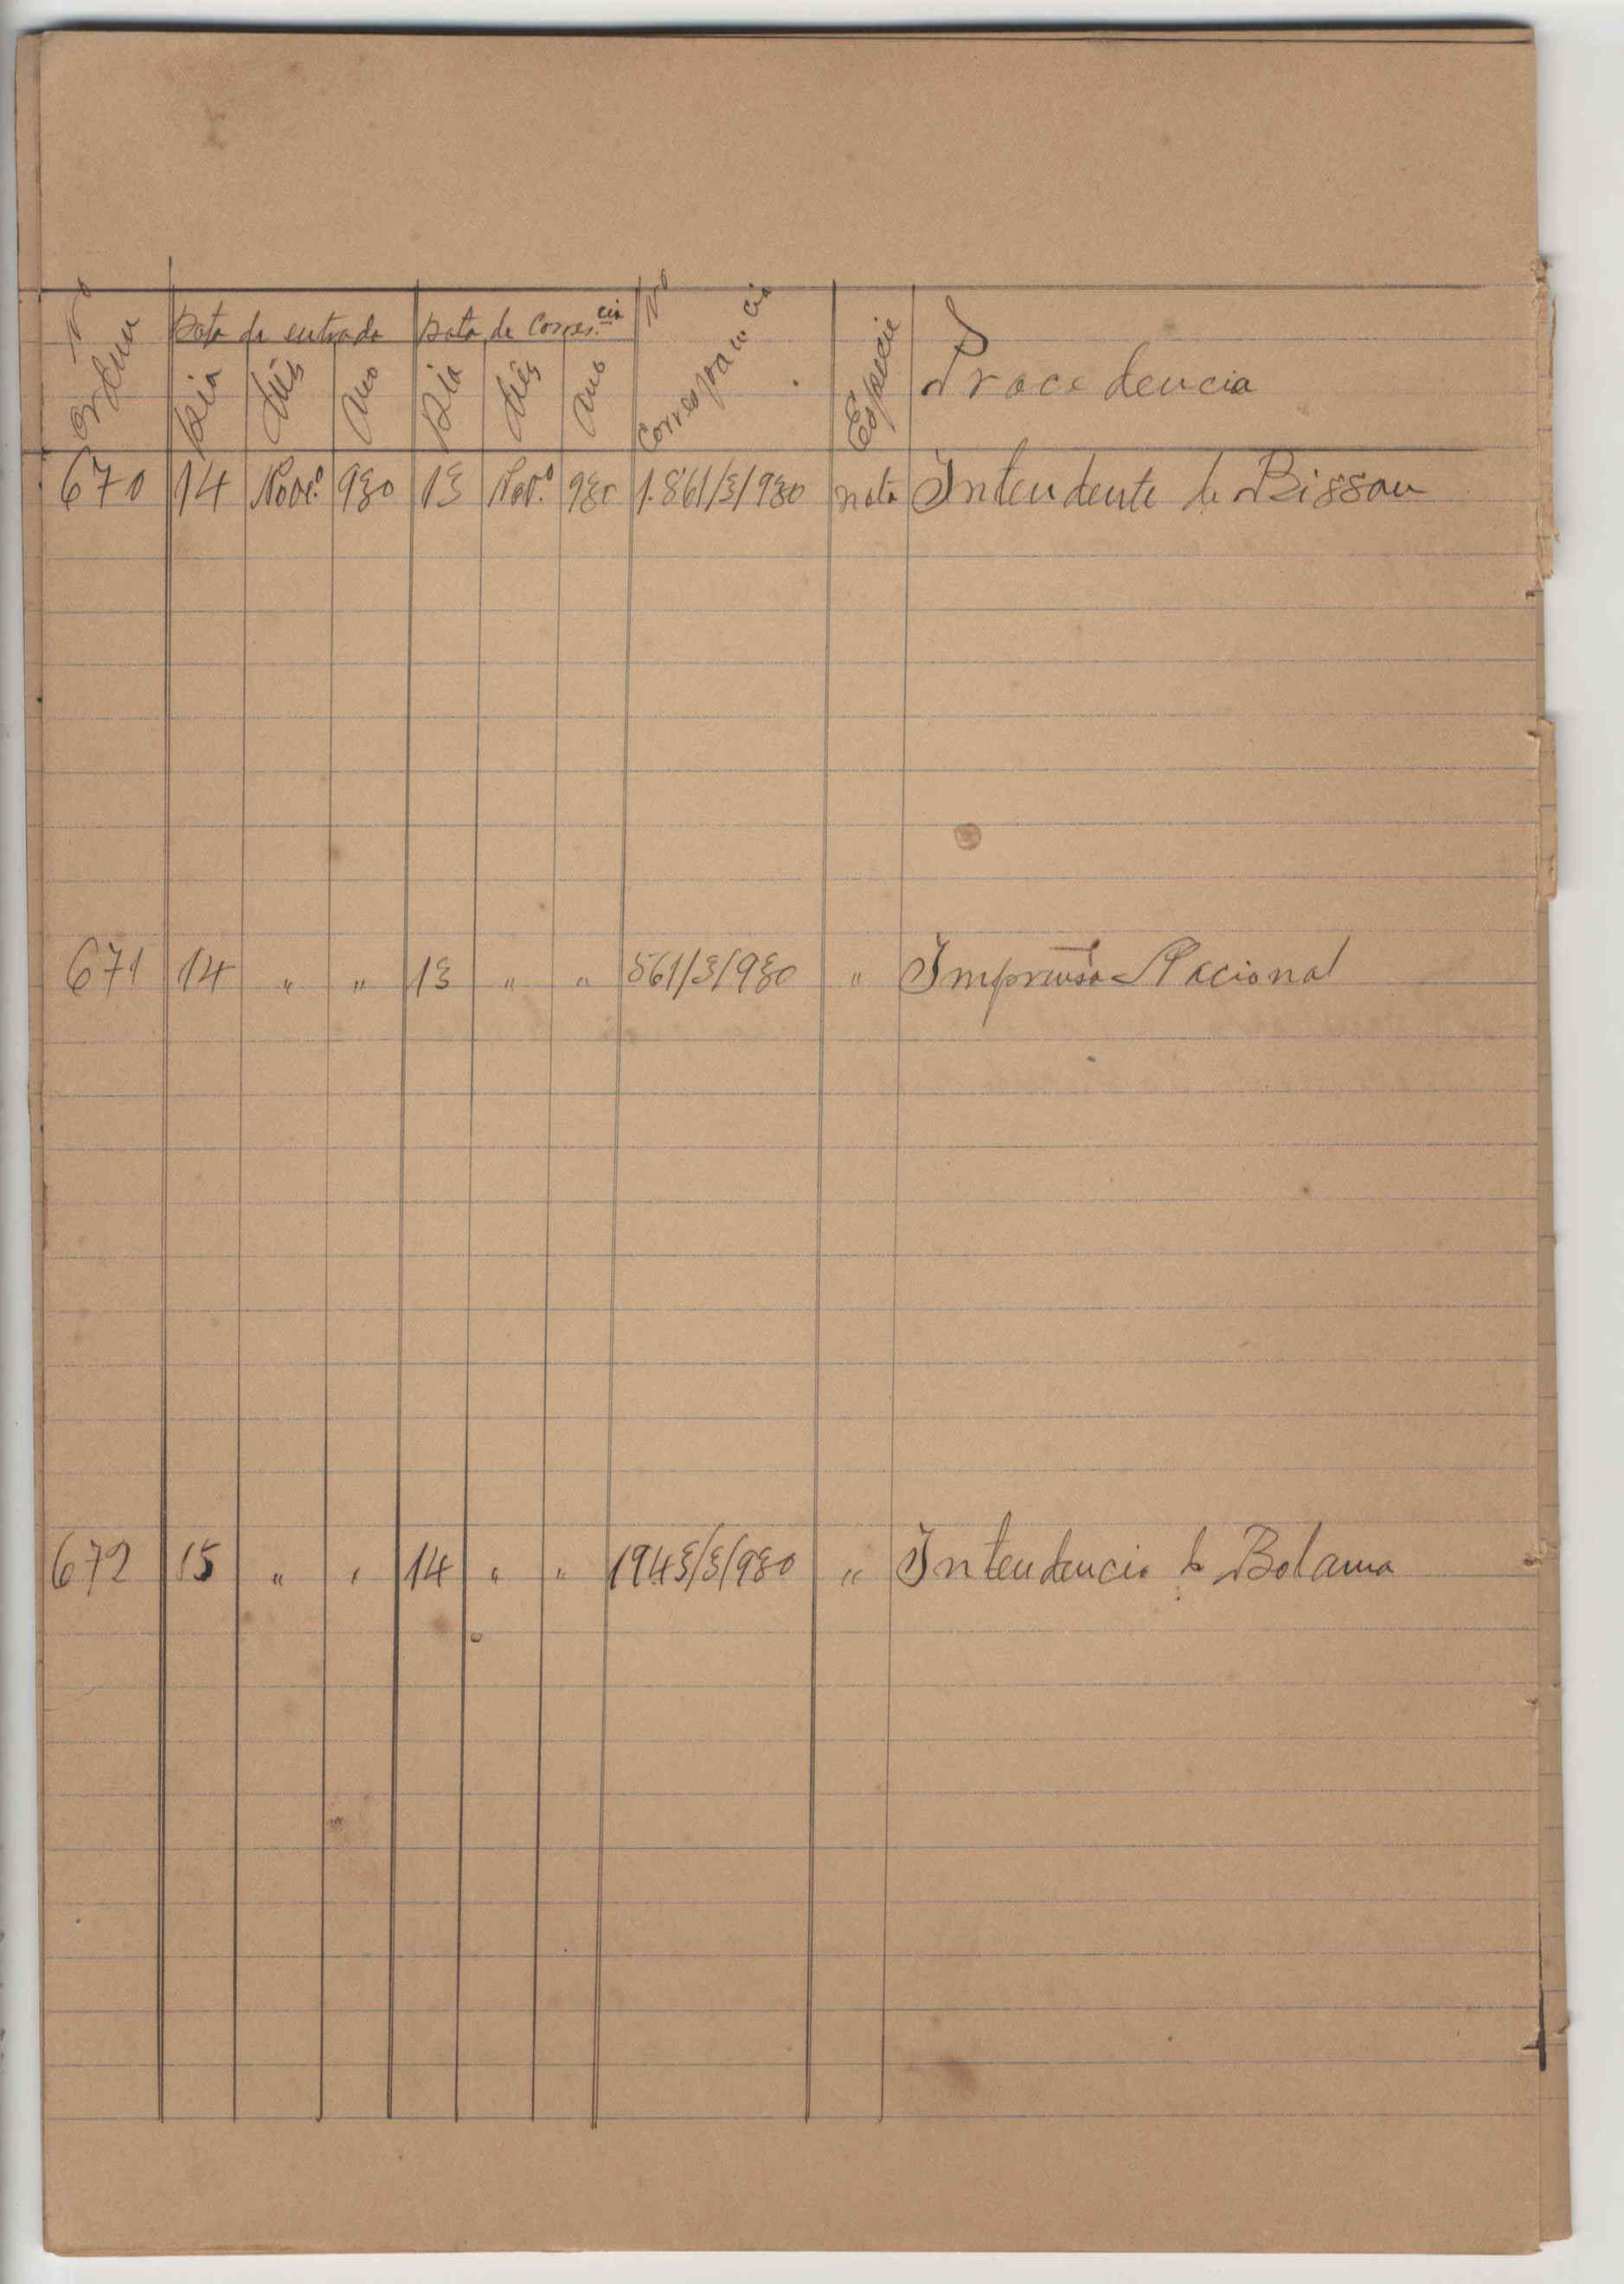 Nº Ordem | Data da entrada | Data de Corres.cia | Nº Correspancia | Especie | Procedencia
Dia | Mês | Ano | Dia | Mês | Ano
670 | 14 | Nove.º | 930 | 13 | Nov.º | 930 | 1.861/3/930 | nota | Intendente de Bissau
671 | 14 | " | " | 13 | " | " | 561/3/930 | " | Imprensa Nacional
672 | 15 | " | " | 14 | " | " | 1943/3/930 | " | Intendencia de Bolama